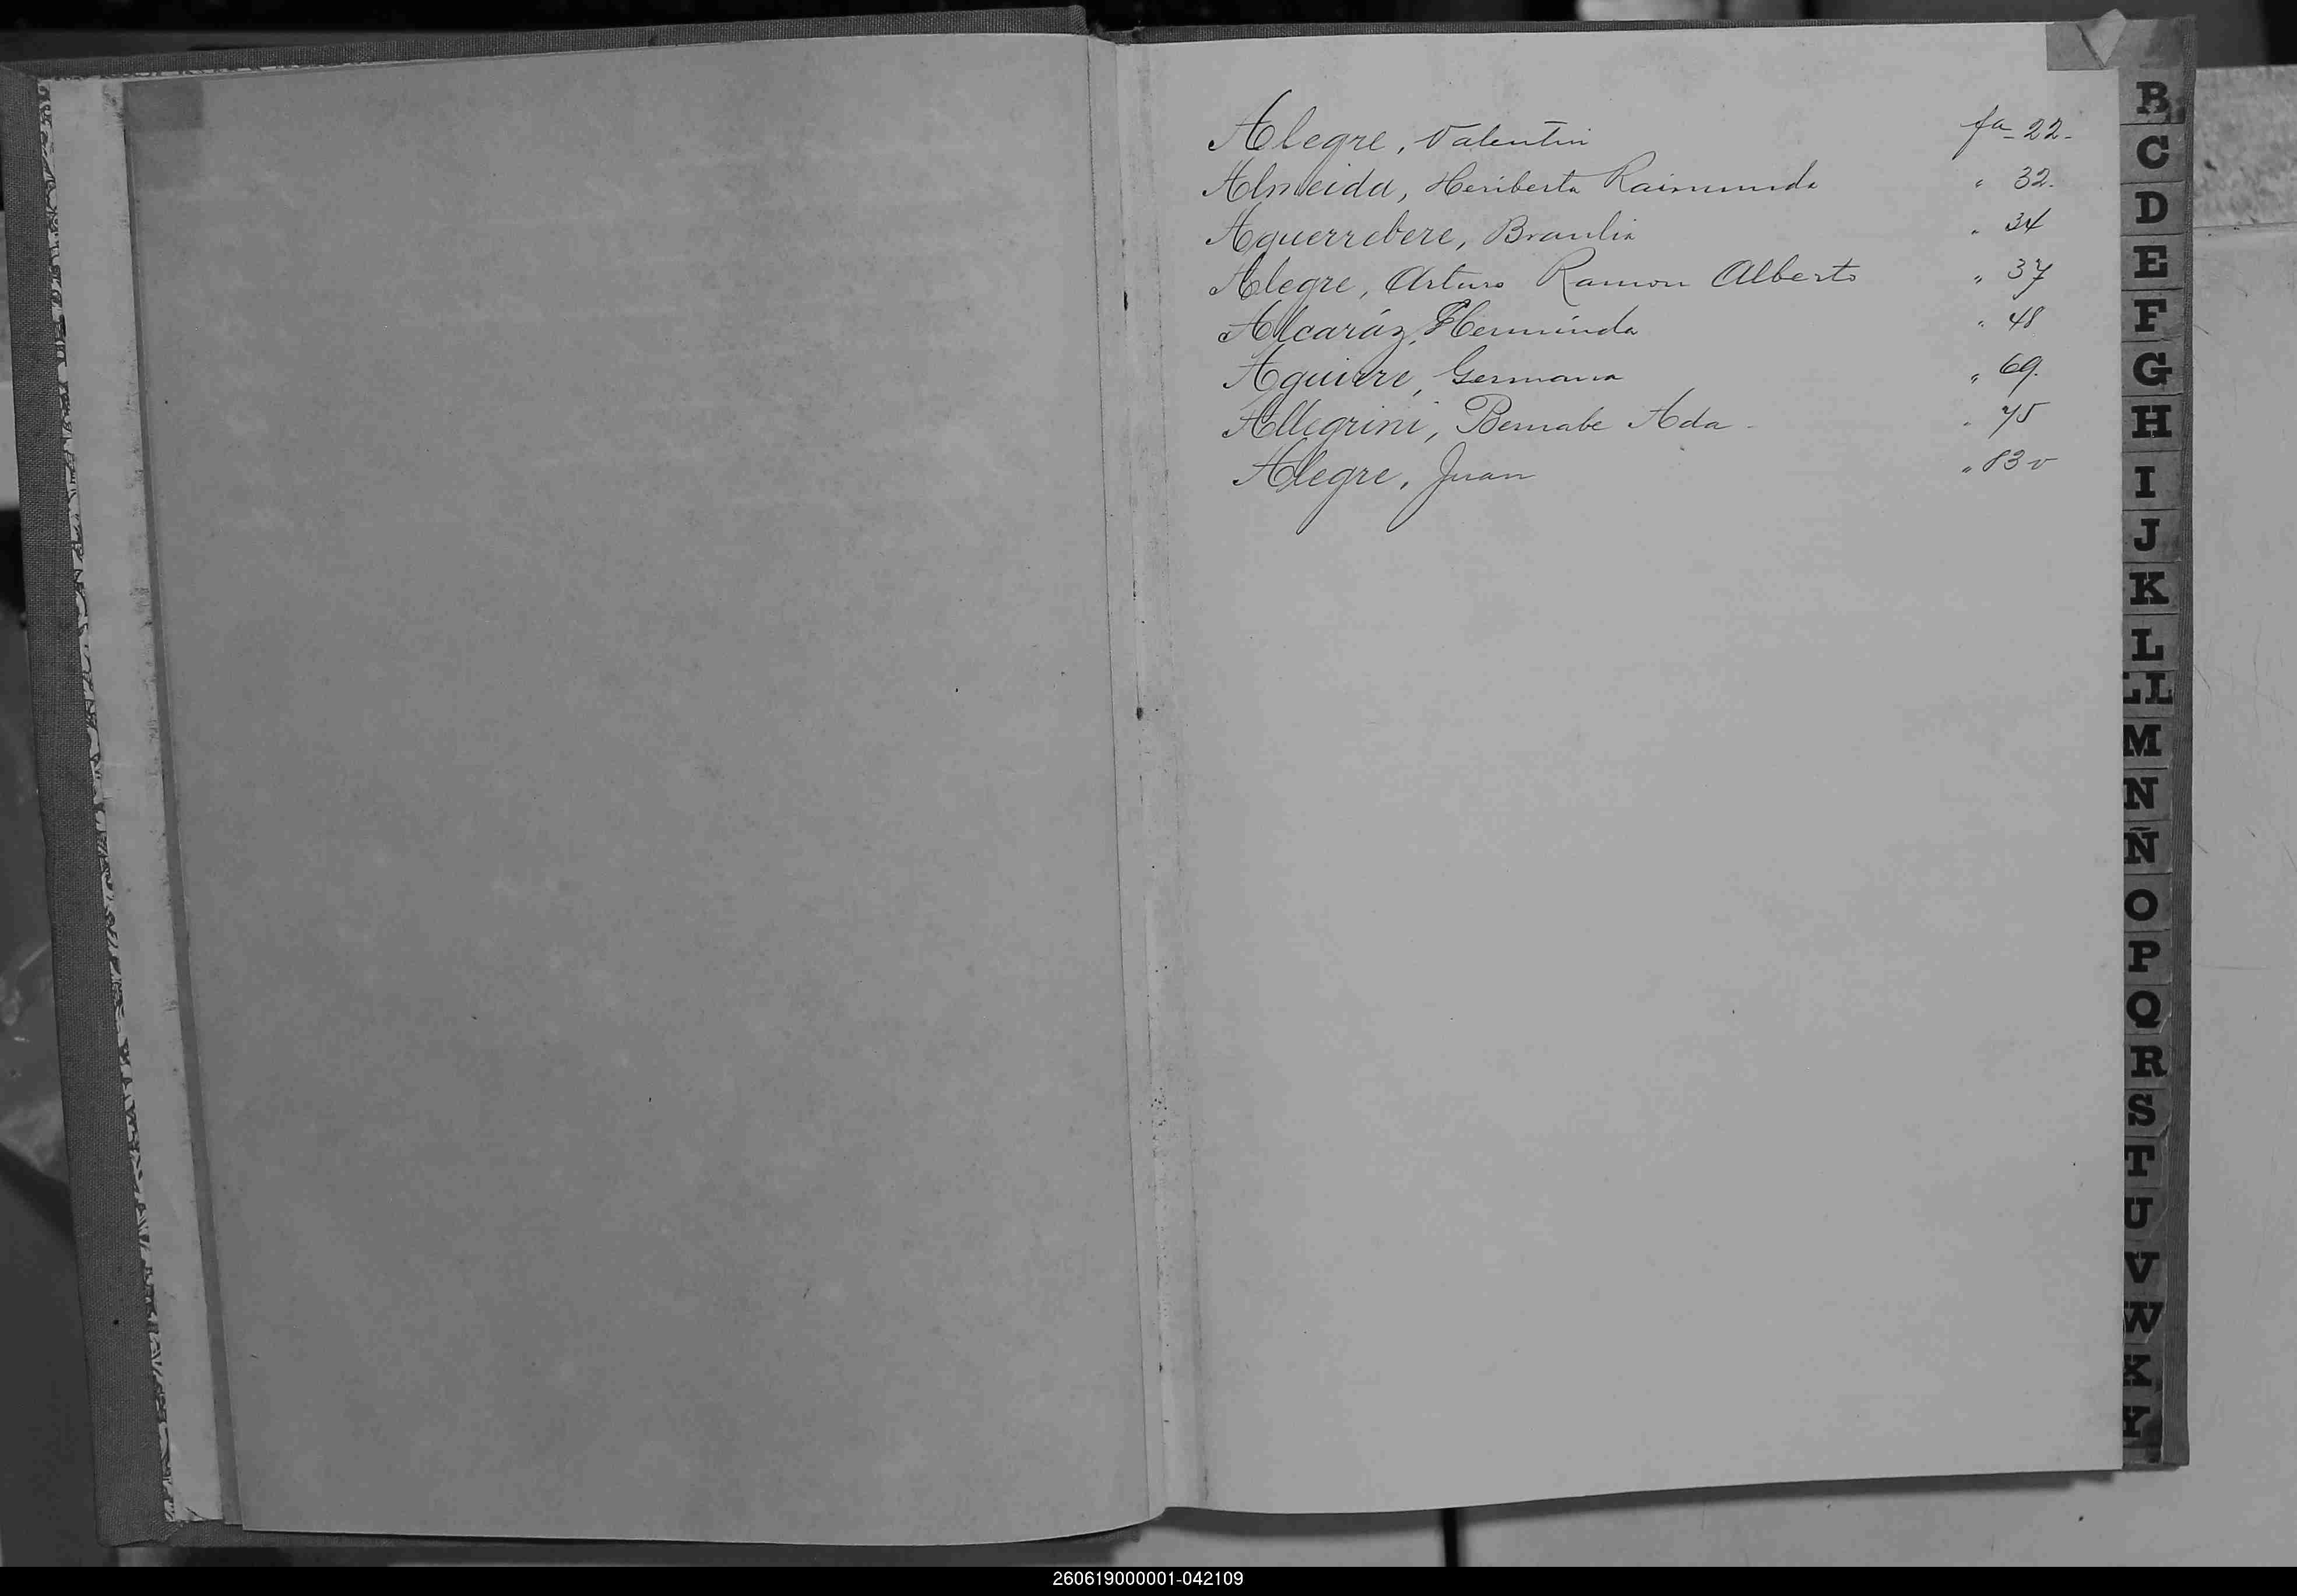 Alegre, Valentin fa 22.
Almeida, Heriberta Raimunda " 32.
Aguerrebere, Braulia " 34
Alegre, Arturo Ramon Alberto " 37
Alcaráz, Herminda " 48
Aguirre, Germana " 69.
Allegrini, Bernabe Ada " 75
Alegre, Juan " 83 v
B
C
D
E
F
G
H
I
J
K
L
LL
M
N
Ñ
O
P
Q
R
S
T
U
V
W
X
260619000001-042109